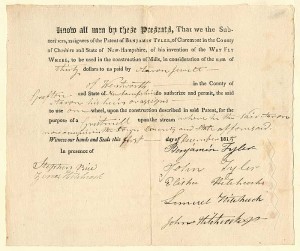 Know all men by these Presents, That we the Sub-
scribers, assignees of the Patent of BENJAMIN TYLER, of Claremont in the County
of Cheshire and State of New-Hampshire, of his invention of the WRY FLY
WHEEL, to be used in the construction of Mills, in consideration of the sum of
Thirty dollars to us paid by Aaron
of Wentworth in the County
of Grafton and State of New hampshire do authorize and permit, the said
Aaron his heirs or assigns to
use wheel, upon the construction described in said Patent, for the
purpose of a Gristmill upon the stream
County and State aforesaid
Witness our hands and Seals this first day
In presence of
Stephen Rice
Hitchcock
Benjamin Tyler
John Tyler
Elisha Hitchcock
Samuel Hitchcock
John Hitchcock